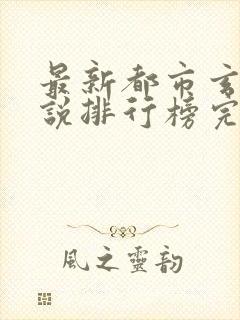 最新都市玄
說排行榜完
風之靈韵